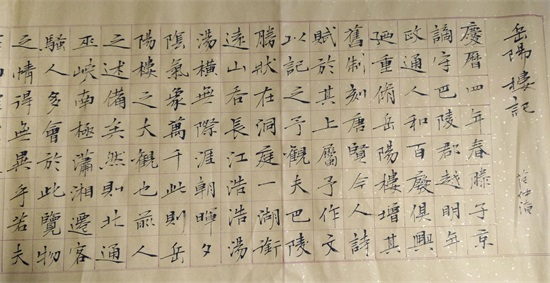 岳陽樓記
范仲淹
慶曆四年春滕子京
謫守巴陵郡越明年
政通人和百廢俱興
廼重脩岳陽樓增其
舊制刻唐賢今人詩
賦於其上屬予作文
以記之予觀夫巴陵
勝狀在洞庭一湖銜
遠山吞長江浩浩湯
湯橫無際涯朝暉夕
陰氣象萬千此則岳
陽樓之大觀也前人
之述備矣然則北通
巫峽南極瀟湘遷客
騷人多會於此覽物
之情得無異乎若夫